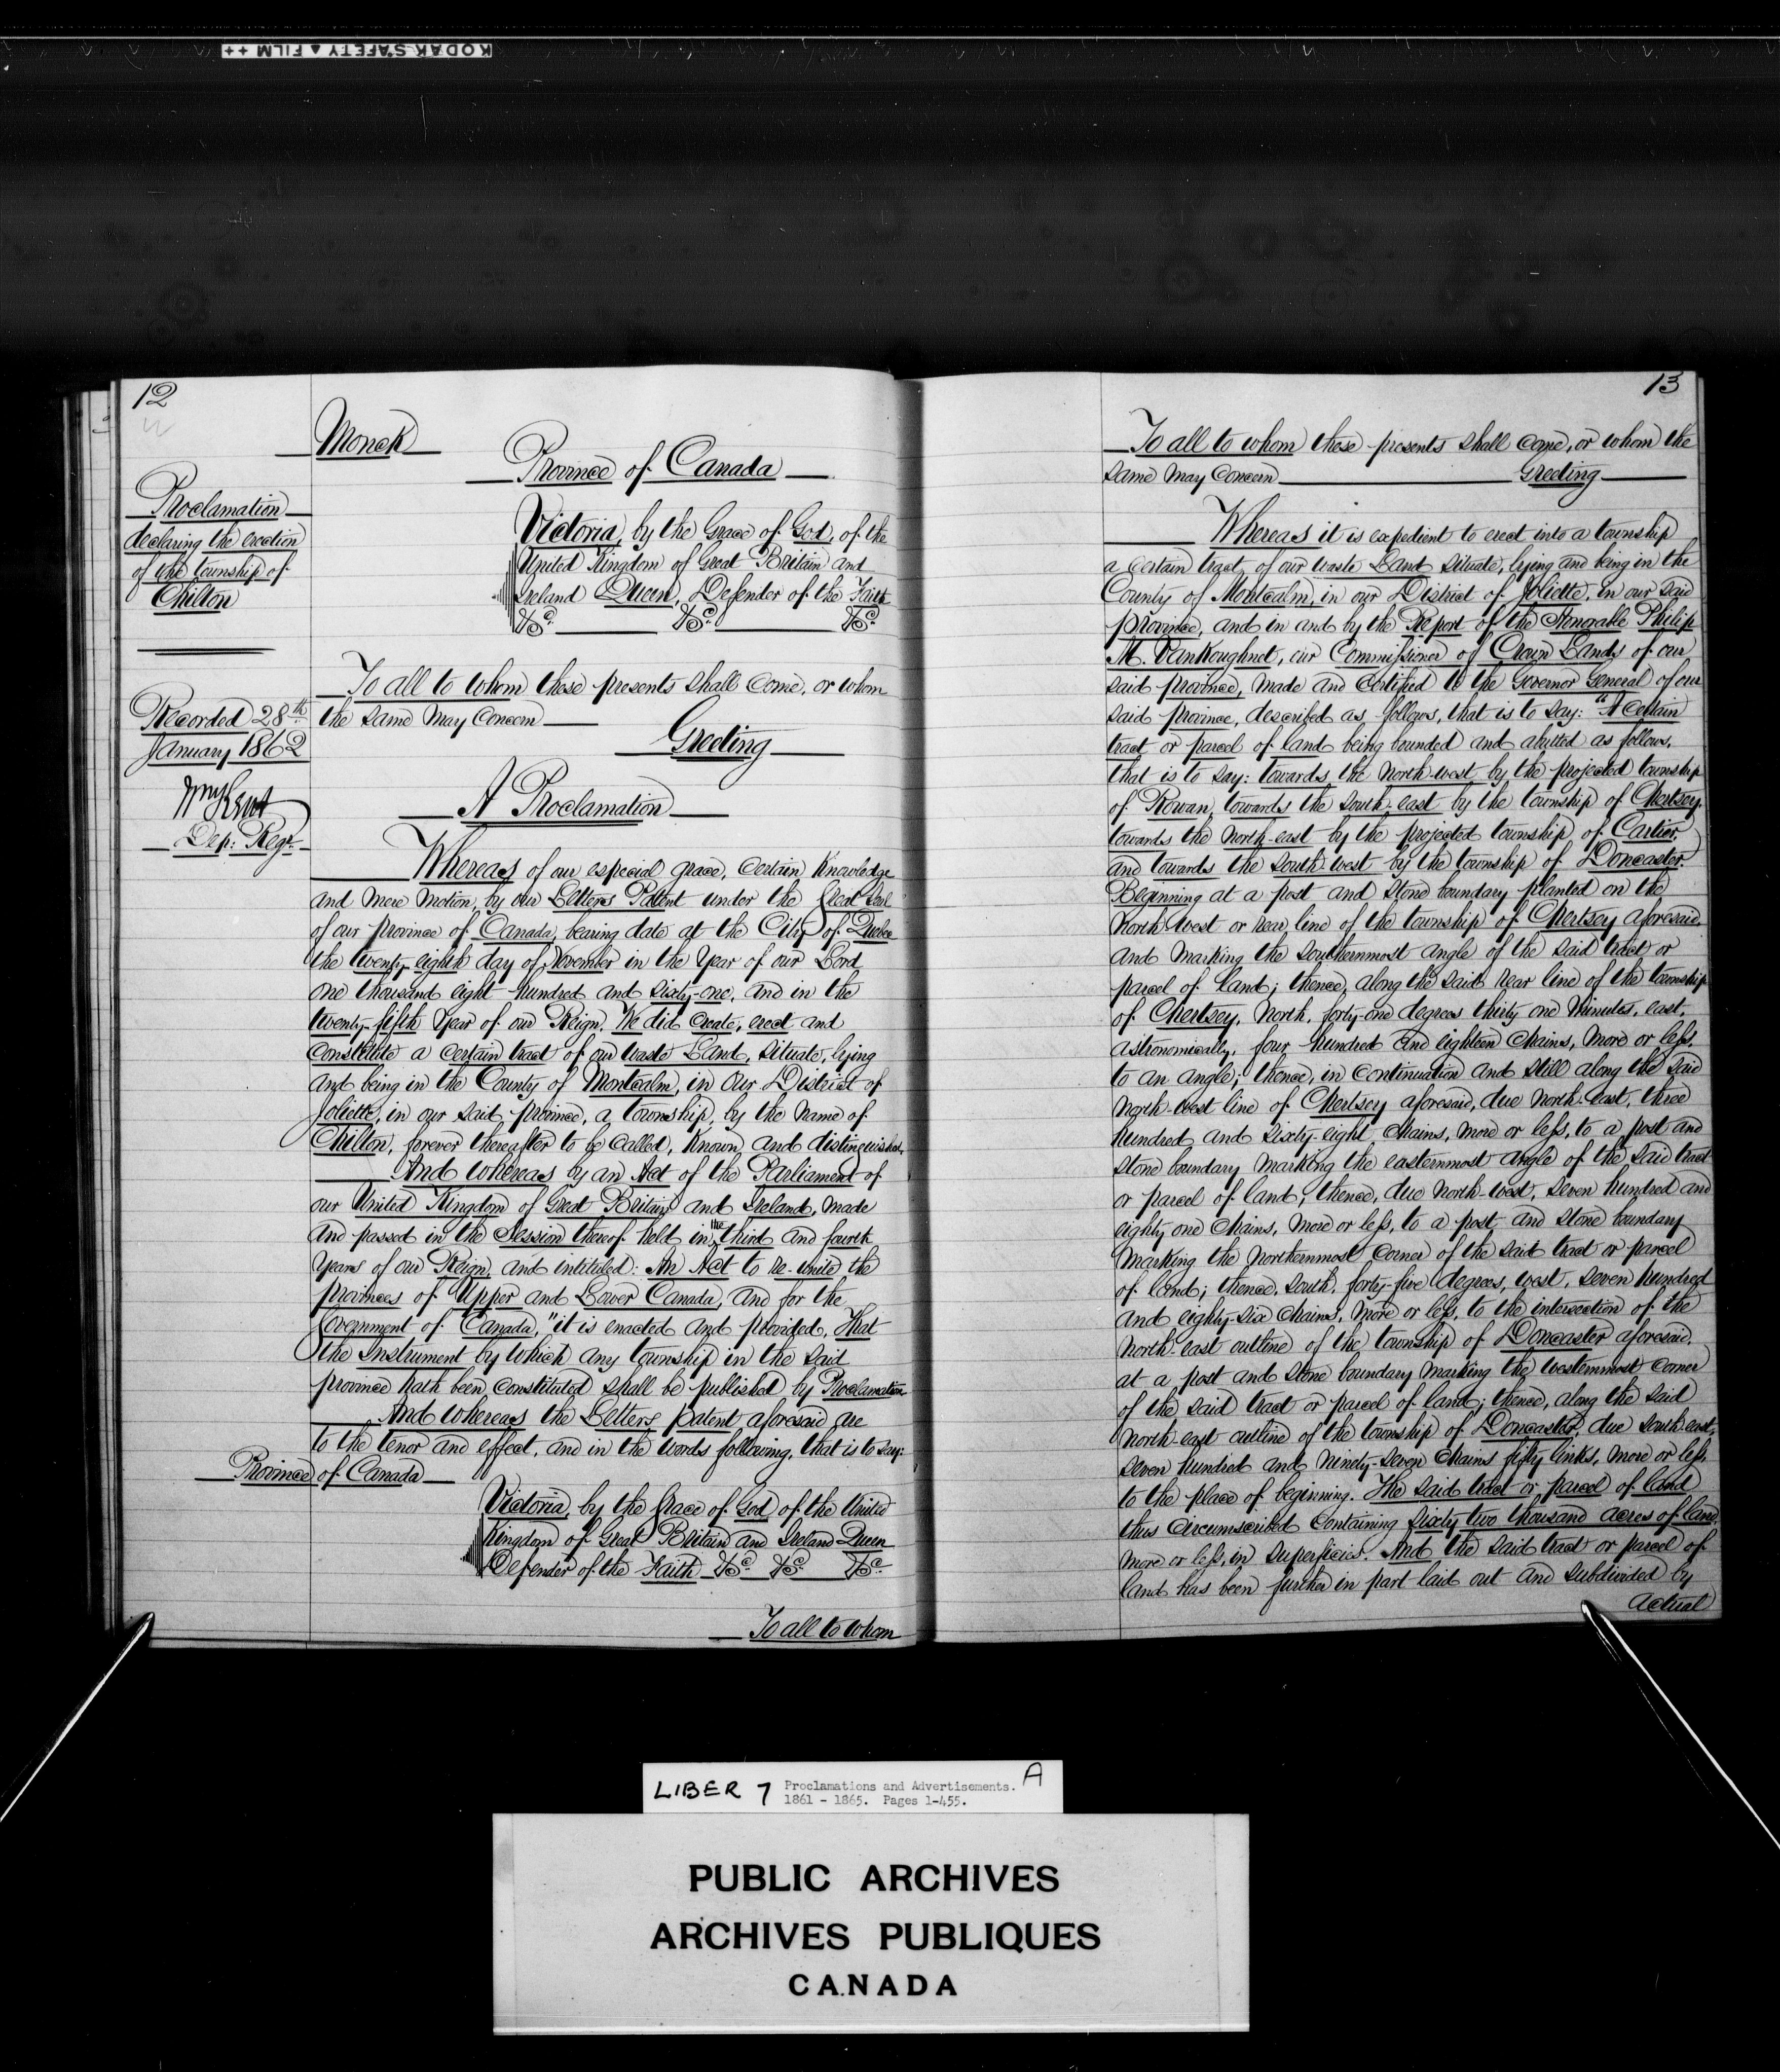 KODAK SAFETY ▲ FILM ++
12
Monck
Province of Canada
Proclamation
declaring the erection
of the township of
Chilton
Recorded 28th
January 1862
Wm Kent
Dep: Regr.
Victoria, by the Grace of God, of the
United Kingdom of Great Britain and
Ireland Queen, Defender of the Faith
&c. &c. &c.
To all to whom these presents shall come, or whom
the same may concern
Greeting
A Proclamation
Whereas of our especial grace, certain knowledge
and mere motion, by our Letters Patent under the Great Seal
of our province of Canada, bearing date at the City of Quebec
the twenty-eighth day of November in the Year of our Lord
one thousand eight hundred and sixty-one, and in the
twenty-fifth Year of our Reign, We did create, erect and
constitute a certain tract of our waste Land, situate, lying
and being in the County of Montcalm, in our District of
Joliette, in our said province, a township, by the name of
Chilton, forever thereafter to be called, known and distinguished,
And whereas by an Act of the Parliament of
our United Kingdom of Great Britain and Ireland, made
and passed in the Session thereof held in the third and fourth
Years of our Reign, and intituled: An Act to re-unite the
provinces of Upper and Lower Canada, and for the
Government of Canada," it is enacted and provided, That
the Instrument by which any township in the said
province hath been constituted shall be published by Proclamation
And whereas the Letters patent aforesaid are
to the tenor and effect, and in the words following, that is to say:
Province of Canada
Victoria, by the Grace of God of the United
Kingdom of Great Britain and Ireland Queen
Defender of the Faith &c. &c. &c.
To all to whom
13
To all to whom these presents shall come, or whom the
same may concern Greeting
Whereas it is expedient to erect into a township
a certain tract of our waste Land situate, lying and being in the
County of Montcalm, in our District of Joliette, in our said
province, and in and by the Report of the Honorable Philip
M. VanKoughnet, our Commissioner of Crown Lands of our
said province, made and certified to the Governor General of our
said province, described as follows, that is to say: "A certain
tract or parcel of land being bounded and abutted as follows,
that is to say: towards the North-west by the projected township
of Rowan, towards the South-east by the township of Chertsey,
towards the North-east by the projected township of Cartier,
and towards the South-west by the township of Doncaster.
Beginning at a post and stone boundary planted on the
North West or rear line of the township of Chertsey aforesaid,
and marking the Southernmost angle of the said tract or
parcel of land; thence, along the said rear line of the township
of Chertsey, North, forty-one degrees thirty one minutes, east,
astronomically, four hundred and eighteen chains, more or less,
to an angle; thence, in continuation and still along the said
North-west line of Chertsey aforesaid, due North-east, three
hundred and sixty-eight chains, more or less, to a post and
stone boundary marking the easternmost angle of the said tract
or parcel of land; thence, due North-west, seven hundred and
eighty one chains, more or less, to a post and stone boundary
marking the Northernmost corner of the said tract or parcel
of land; thence, South, forty-five degrees, west, seven hundred
and eighty-six chains, more or less, to the intersection of the
North-east outline of the township of Doncaster aforesaid,
at a post and stone boundary marking the Westernmost corner
of the said tract or parcel of land; thence, along the said
North-east outline of the township of Doncaster, due South-east,
seven hundred and ninety-seven chains fifty links, more or less,
to the place of beginning. The said tract or parcel of land
thus circumscribed containing sixty two thousand acres of land,
more or less, in superficies. And the said tract or parcel of
land has been further in part laid out and subdivided by
actual
LIBER 7 Proclamations and Advertisements. A
1861 - 1865. Pages 1-455.
PUBLIC ARCHIVES
ARCHIVES PUBLIQUES
CANADA